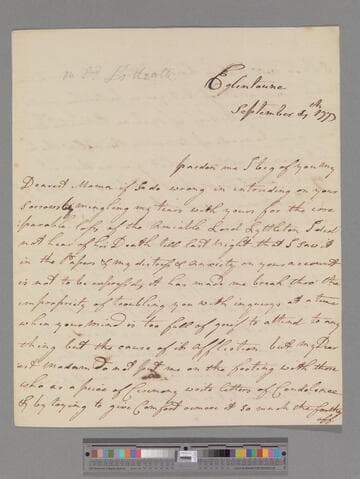 Eglintoune
September 4th 1773
pardon me I beg of you my
Dearest Mama if I do wrong in intruding on your
Sorrows by mingling my tears with yours for the irre
parable loss of the Amiable Lord Lyttleton I did
not hear of his Death till last Night that I saw it
in the Papers & my distress & Anxiety on your account
is not to be expressed, it has made me break thro' the
impropriety of troubling you with inquirys at a time
when your mind is too full of grief to attend to any
thing but the cause of its Affliction. but my Dear
est Madam Do not put me on the footing with those
who as a piece of Ceremony write letters of Condolance
& by trying to give Comfort renew it so much the
off